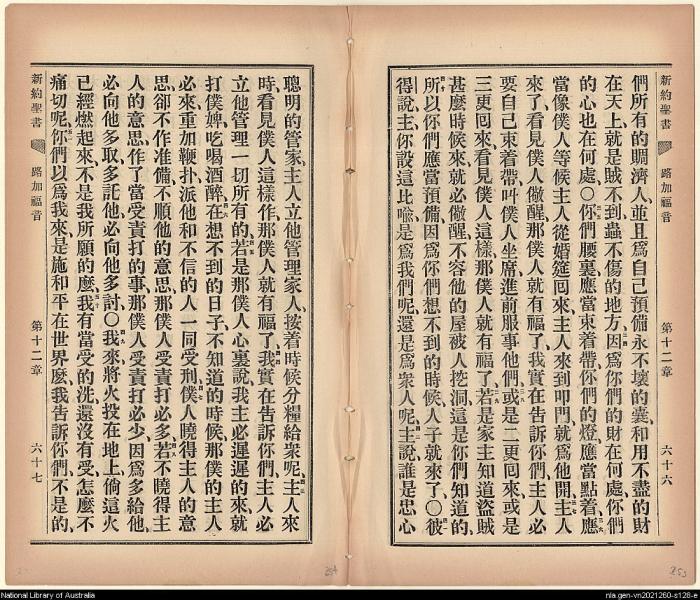 新約聖書 路加福音 第十二章 六十六
們所有的賙濟人、並且爲自己預備永不壞的囊、和用不盡的財
在天上、就是賊不到蟲不傷的地方、因爲你們的財在何處、你們
的心也在何處、〇你們腰裏應當束着帶、你們的燈、應當點着、應
當像僕人等候主人從婚筵囘來、主人來到叩門、就爲他開、主人
來了、看見僕人儆醒、那僕人就有福了、我實在告訴你們、主人必
要自己束着帶、叫僕人坐席、進前服事他們、或是二更囘來、或是
三更囘來、看見僕人這樣、那僕人就有福了、若是家主知道盜賊
甚麼時候來、就必儆醒、不容他的屋被人挖洞、這是你們知道的、
所以你們應當預備、因爲你們想不到的時候、人子就來了、〇彼
得說、主、你設這比喻、是爲我們呢、還是爲衆人呢、主說、誰是忠心
新約聖書 路加福音 第十二章 六十七
聰明的管家、主人立他管理家人、按着時候分糧給衆呢、主人來
時、看見僕人這樣作、那僕人就有福了、我實在告訴你們、主人必
立他管理一切所有的、若是那僕人心裏說、我主必遲遲的來、就
打僕婢、吃喝酒醉、在想不到的日子、不知道的時候、那僕的主人
必來、重加鞭扑、派他和不信的人一同受刑、僕人曉得主人的意
思、卻不作准備、不順他的意思、那僕人受責打必多、若不曉得主
人的意思、作了當受責打的事、那僕人受責打必少、因爲多給他、
必向他多取、多託他、必向他多討、〇我來將火投在地上、倘這火
已經燃起來、不是我所願的麼、我有當受的洗、還沒有受、怎麼不
痛切呢、你們以爲我來是施和平在世界麼、我告訴你們、不是的、
254
253
National Library of Australia
nla.gen-vn2021260-s128-e